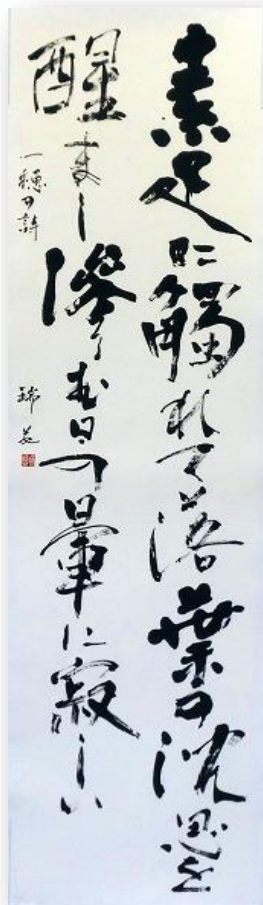 素足に觸れて落葉の沈思を
醒まし滲む日の暈に寂しい
一穂の詩
瑞